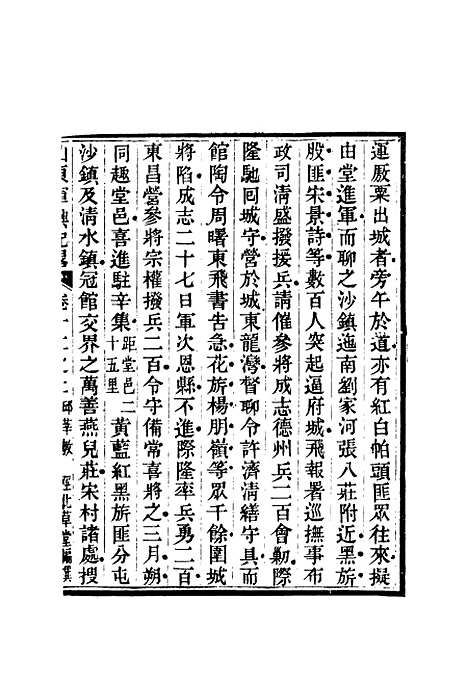 運厥粟出城者旁午於道亦有紅白帕頭匪眾往來擬
由堂進軍而聊之沙鎮迤南劉家河張八莊附近黑旂
股匪宋景詩等數百人突起逼府城飛報署巡撫事布
政司清盛撥援兵請催參將成志德州兵二百會勦際
隆馳回城守營於城東龍灣督聊令許濟清繕守具而
館陶令周曙東飛書告急花旂楊朋嶺等眾千餘圍城
將陷成志二十七日軍次恩縣不進際隆率兵勇二百
東昌營參將宗權撥兵二百令守備常喜將之三月朔
同趣堂邑喜進駐辛集距堂邑二十五里黃藍紅黑旂匪分屯
沙鎮及清水鎮冠館交界之萬善燕兒莊宋村諸處搜
山東軍興紀略 卷十二之二